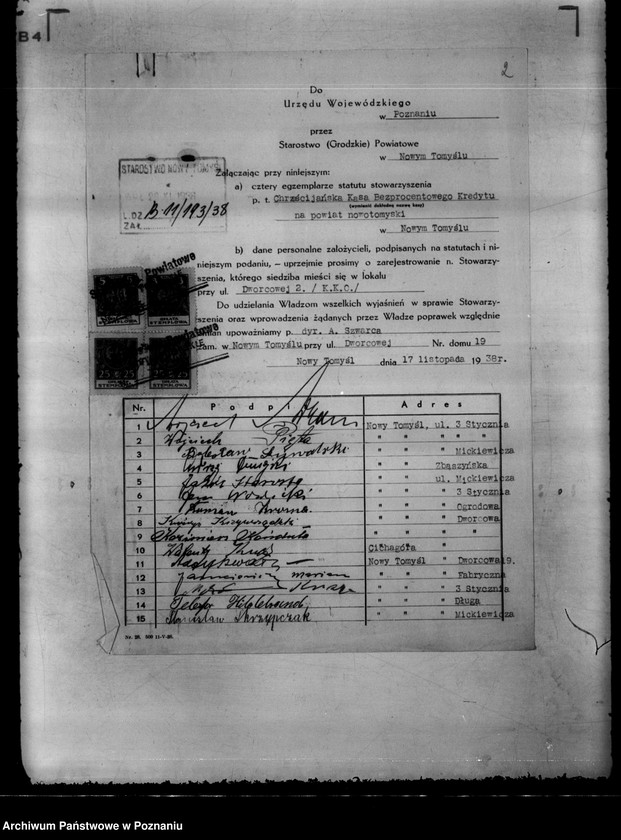 B4
2
Do
Urzędu Wojewódzkiego
w Poznaniu
przez
Starostwo (Grodzkie) Powiatowe
w Nowym Tomyślu
STAROSTWO NOWY TOMYŚL
L. DZ. B-11/193/38
ZAŁ.
Załączając przy niniejszym:
a) cztery egzemplarze statutu stowarzyszenia
p. t. Chrześcijańska Kasa Bezprocentowego Kredytu
(wymienić dokładną nazwę kasy)
na powiat nowotomyski
w Nowym Tomyślu
b) dane personalne założycieli, podpisanych na statutach i ni-
niejszym podaniu, — uprzejmie prosimy o zarejestrowanie n. Stowarzy-
szenia, którego siedziba mieści się w lokalu
przy ul. Dworcowej 2. / K.K.C./
Do udzielania Władzom wszelkich wyjaśnień w sprawie Stowarzy-
szenia oraz wprowadzenia żądanych przez Władze poprawek względnie
zmian upoważniamy p. dyr. A. Szwarca
zam. w Nowym Tomyślu przy ul. Dworcowej Nr. domu 19
Nowy Tomyśl dnia 17 listopada 1938r.
Powiatowe
Powiatowe
Nr. Podpis Adres
1 Nowy Tomyśl, ul. 3 Stycznia
2 Wojciech " " " "
3 " " Mickiewicza
4 " " Zbąszyńska
5 " " ul. Mickiewicza
6 " " " 3 Stycznia
7 Roman " " " Ogrodowa
8 " " " Dworcowa
9 Kazimierz " " " "
10 Cichagóra
11 Nowy Tomyśl " Dworcowa 19.
12 Marian " " " Fabryczna
13 " " " 3 Stycznia
14 " " " Długa
15 Stanisław Skrzypczak " " " Mickiewicza
Nr. 25. 500 11-V-38.
Archiwum Państwowe w Poznaniu